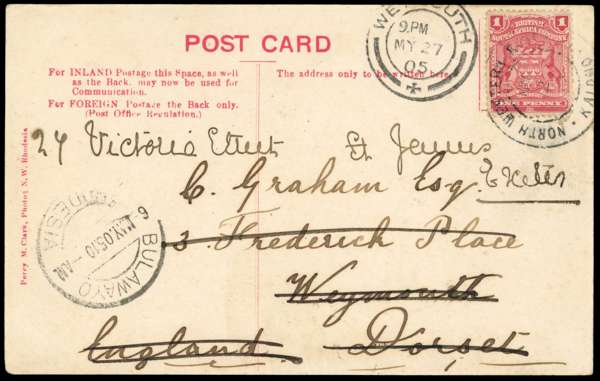 POST CARD
For INLAND Postage this Space, as well
as the Back, may now be used for
Communication.
For FOREIGN Postage the Back only.
(Post Office Regulation.)
The address only to be written here.
WEYMOUTH
9.PM
MY 27
05
1 BRITISH 1
SOUTH AFRICA COMPANY
ONE PENNY
KALOMO
NORTH WESTERN
24 Victoria Street St James
Exeter
C. Graham Esq.
3 Frederick Place
Weymouth
England Dorset
BULAWAYO
RHODESIA
6 MAY.05.10-AM
Percy M. Clark, Photo; N. W. Rhodesia